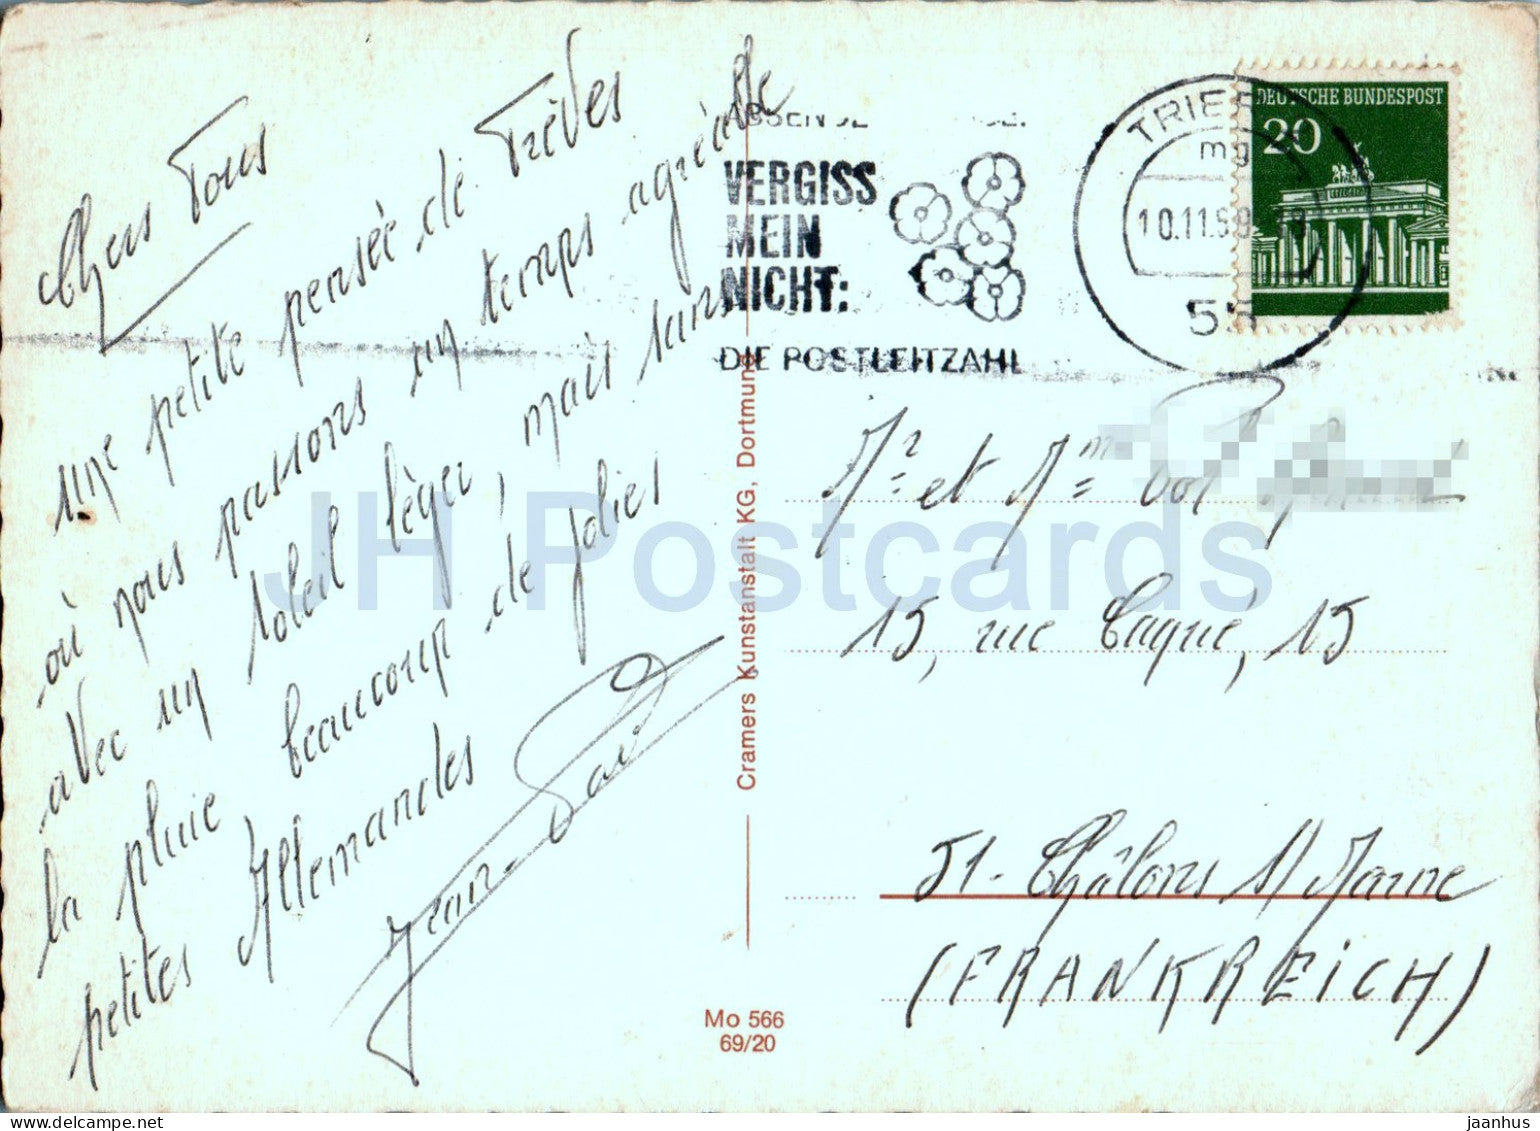 Chers Tous
une petite pensée de Trèves
où nous passons un temps agréable
avec un soleil léger, mais sans
la pluie beaucoup de jolies
petites Allemandes
Jean-
VERGISS
MEIN
NICHT:
DIE POSTLEITZAHL
TRIER
mg
10.11.69
55
DEUTSCHE BUNDESPOST
20
Mr et Mme
15, rue Caqué, 15
51- Châlons s/ Marne
(FRANKREICH)
Cramers Kunstanstalt KG, Dortmund
Mo 566
69/20
JH Postcards
www.delcampe.net
jaanhus